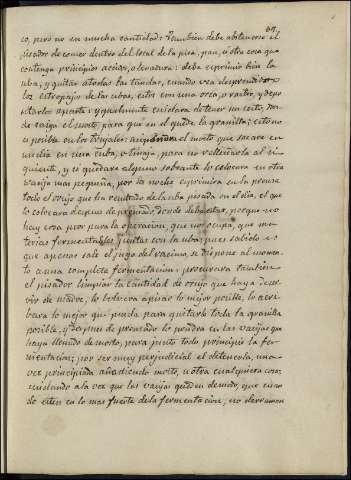 co, pero no en mucha cantidad: Tambien debe abstenerse el
pisador de comer dentro del local de la pisa, pan, u otra cosa que
contenga principios acidos, o levadura: deba esprimir bien la
uba, y quitar a todas las tandas, cuando vea desprendidos
los estropajos de las ubas, estos con una orca, o rastro, y depo
sitarlos aparte: y igualmente cuidara de tener un cesto, don
de caiga el mosto, para que en el quede la granilla; esto no
es posible en los trujales: el mosto que sacare en
un dia en una cuba, o tinaja, para no rellenarla al si
guiente, y si quedare alguno sobrante lo colocara en otra
vasija mas pequeña, por la noche esprimira en la prensa
todo el orujo que ha resultado de la uba pisada en el dia, el que
lo colocara despues de prensado, donde deba estar, porque no
hay cosa peor para la operacion, que nos ocupa, que ma
terias fermentables juntas con la uba; pues sabido es
que apenas sale el jugo del racimo, se dispone al momen
to a una completa fermentacion: procurara tambien
el pisador limpiar la cantidad de orujo que haya de ser
vir de madre, lo bolvera a pisar lo mejor posible, lo acri
bara lo mejor que pueda para quitarle toda la granilla
posible, y despues de prensado lo pondra en las vasijas que
haya llenado de mosto, para junto todo principie la fer
mentacion; por ser muy perjudicial el detenerla, una
vez principiada añadiendo mosto, u otra cualquiera cosa;
cuidando a la vez que las vasijas queden de modo, que cuan
do esten en lo mas fuerte de la fermentacion, no derramen